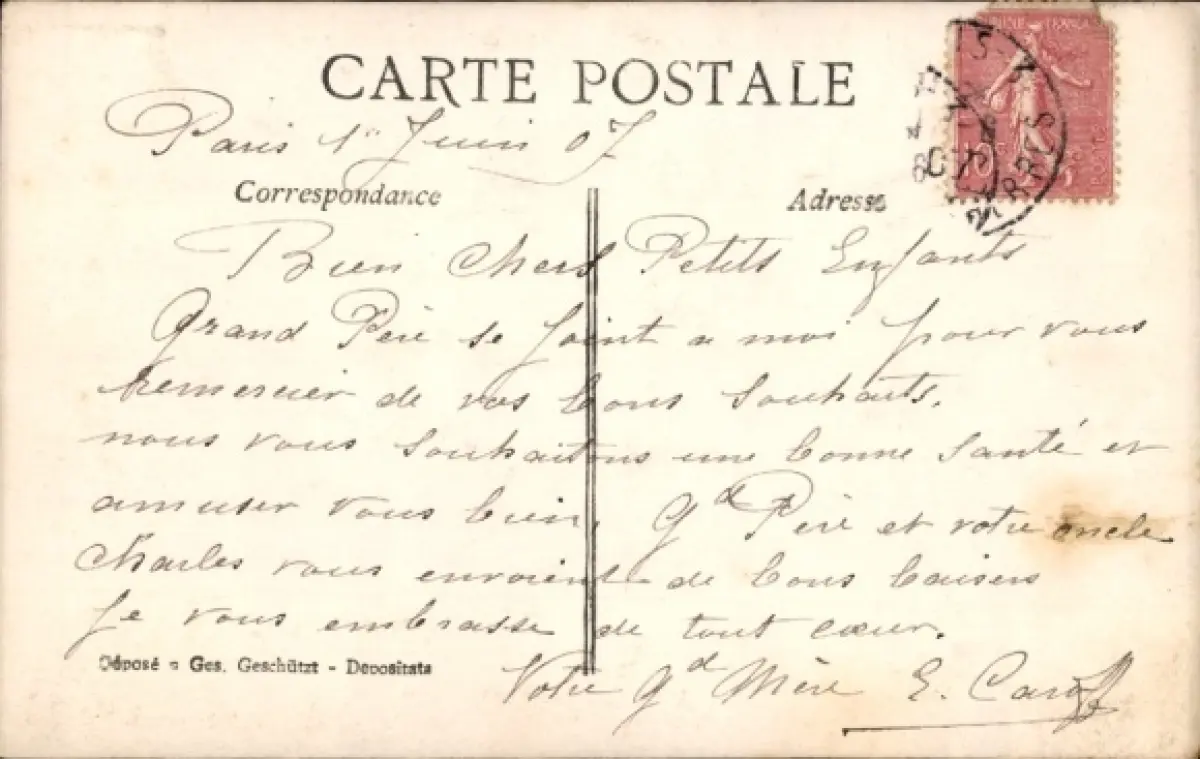 CARTE POSTALE
Paris 1er Juin 07
Correspondance
Adresse
Bien chers Petits Enfants
Grand Père se joint a moi pour vous
remercier de vos bons souhaits.
nous vous souhaitons une bonne santé et
amuser vous bien. Gd Père et votre oncle
Charles vous envoient de bons baisers
Je vous embrasse de tout cœur.
Votre gd Mère E.
Déposé - Ges. Geschützt - Depositata
10c